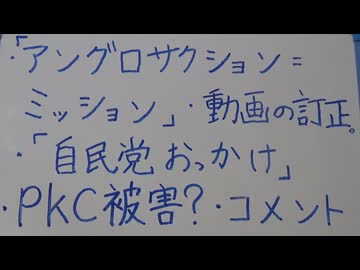 ・「アングロサクション=
ミッション」・動画の訂正。
・「自民党おっかけ」
・PKC被害?・コメント